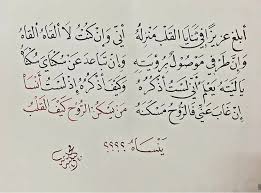 أبلغ عزيزًا في ثنايا القلب منزله أنى وإن كنت لا ألقاه ألقاه
وإن طرفي موصول برؤيته وإن تباعد عن سكناي سكناه
يا ليته يعلم أني لست أذكره وكيف أذكره إذ لست أنساه
إن غاب عني فالروح مسكنه من يسكن الروح كيف القلب
ينساه ؟؟؟؟